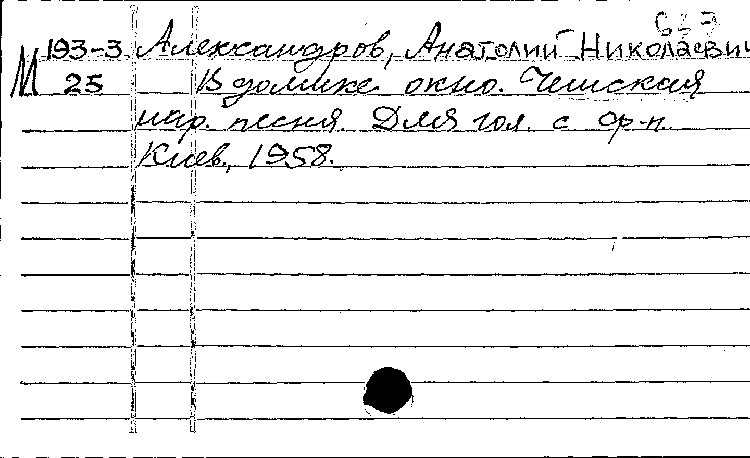 М 193-3 Александров, Анатолий Николаевич
25 В домике окно. Чешская
нар. песня. Для гол. с ф-п.
Киев, 1958.